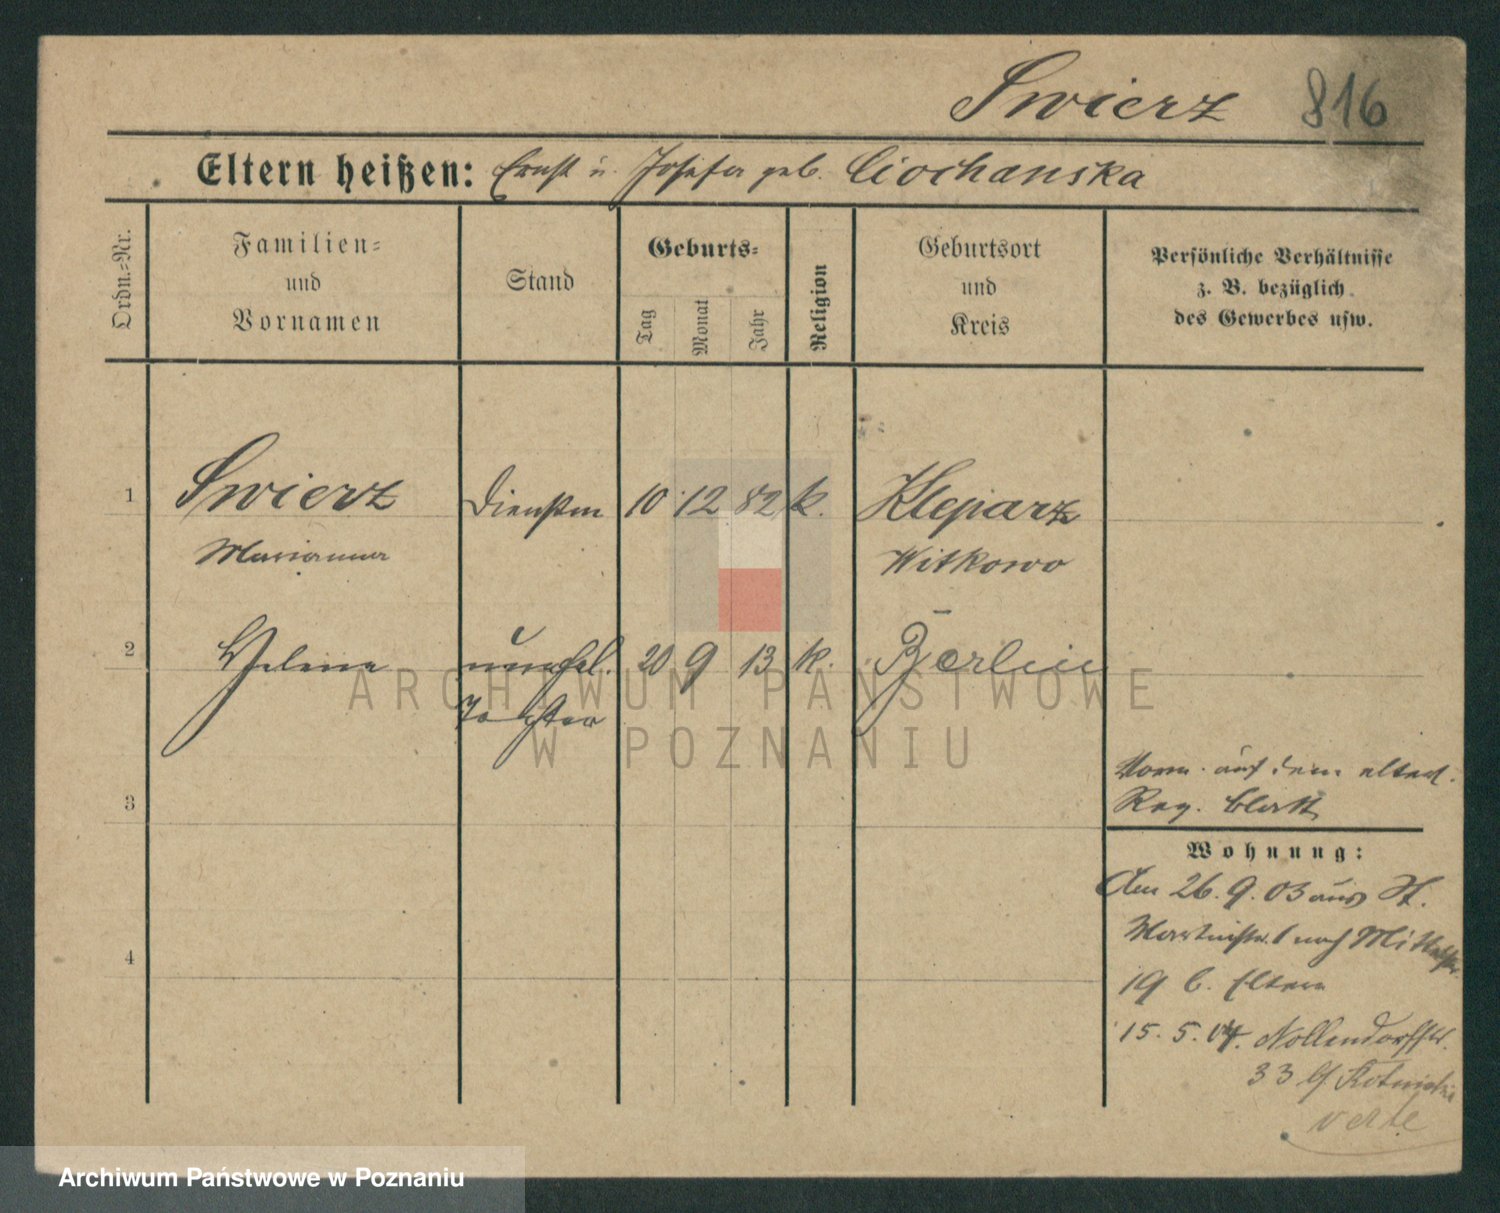 Swierz 816
Eltern heißen: Ernst u. Josefa geb. Ciochanska
Ordn.-Nr.
Familien-
und
Vornamen
Stand
Geburts-
Tag
Monat
Jahr
Religion
Geburtsort
und
Kreis
Persönliche Verhältnisse
z. B. bezüglich
des Gewerbes usw.
1 Swierz Dienstm 10 12 82 k. Kleparz
Marianna Witkowo
2 Helene unehel. 20 9 13 k. Berlin
Tochter
ARCHIWUM PAŃSTWOWE
W POZNANIU
Vorm. auf dem elterl.
Reg. blatt
3
Wohnung:
Am 26.9.03 aus St.
Martinstr. 1 nach Mittelstr.
4
19 b. Eltern
15.5.04. Nollendorffstr.
33 b/
verte
Archiwum Państwowe w Poznaniu